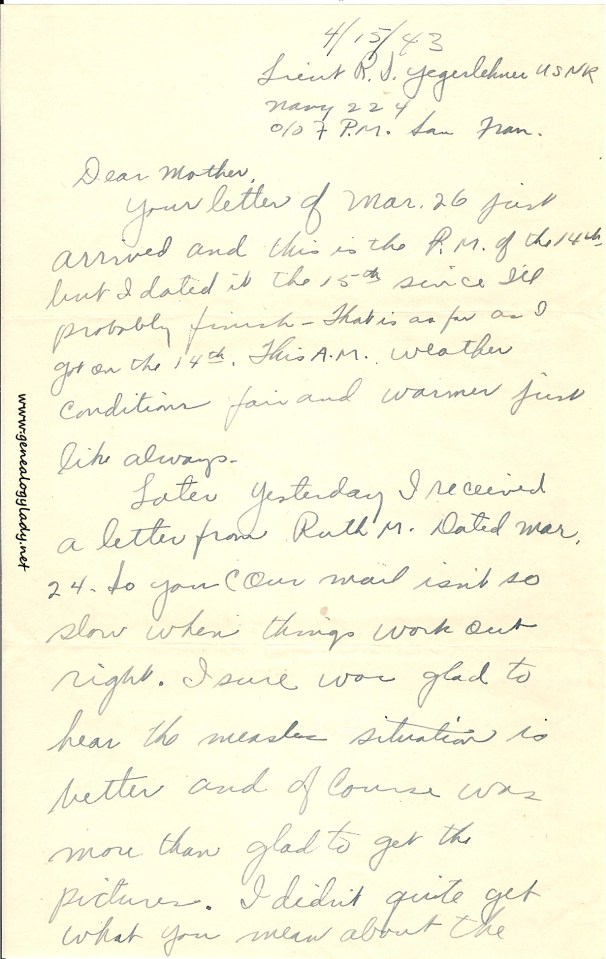 4/15/43
Lieut R. D. Yegerlehner USNR
Navy 224
c/o F P.M. San Fran.
Dear Mother,
Your letter of Mar. 26 just
arrived and this is the P.M. of the 14th
but I dated it the 15th since I'll
probably finish - That is as far as I
got on the 14th. This A.M. weather
conditions fair and warmer just
like always.
Later yesterday I received
a letter from Ruth M. Dated Mar.
24. So you C Our mail isn't so
slow when things work out
right. I sure was glad to
hear the measles situation is
better and of course was
more than glad to get the
pictures. I didn't quite get
what you mean about the
www.genealogylady.net